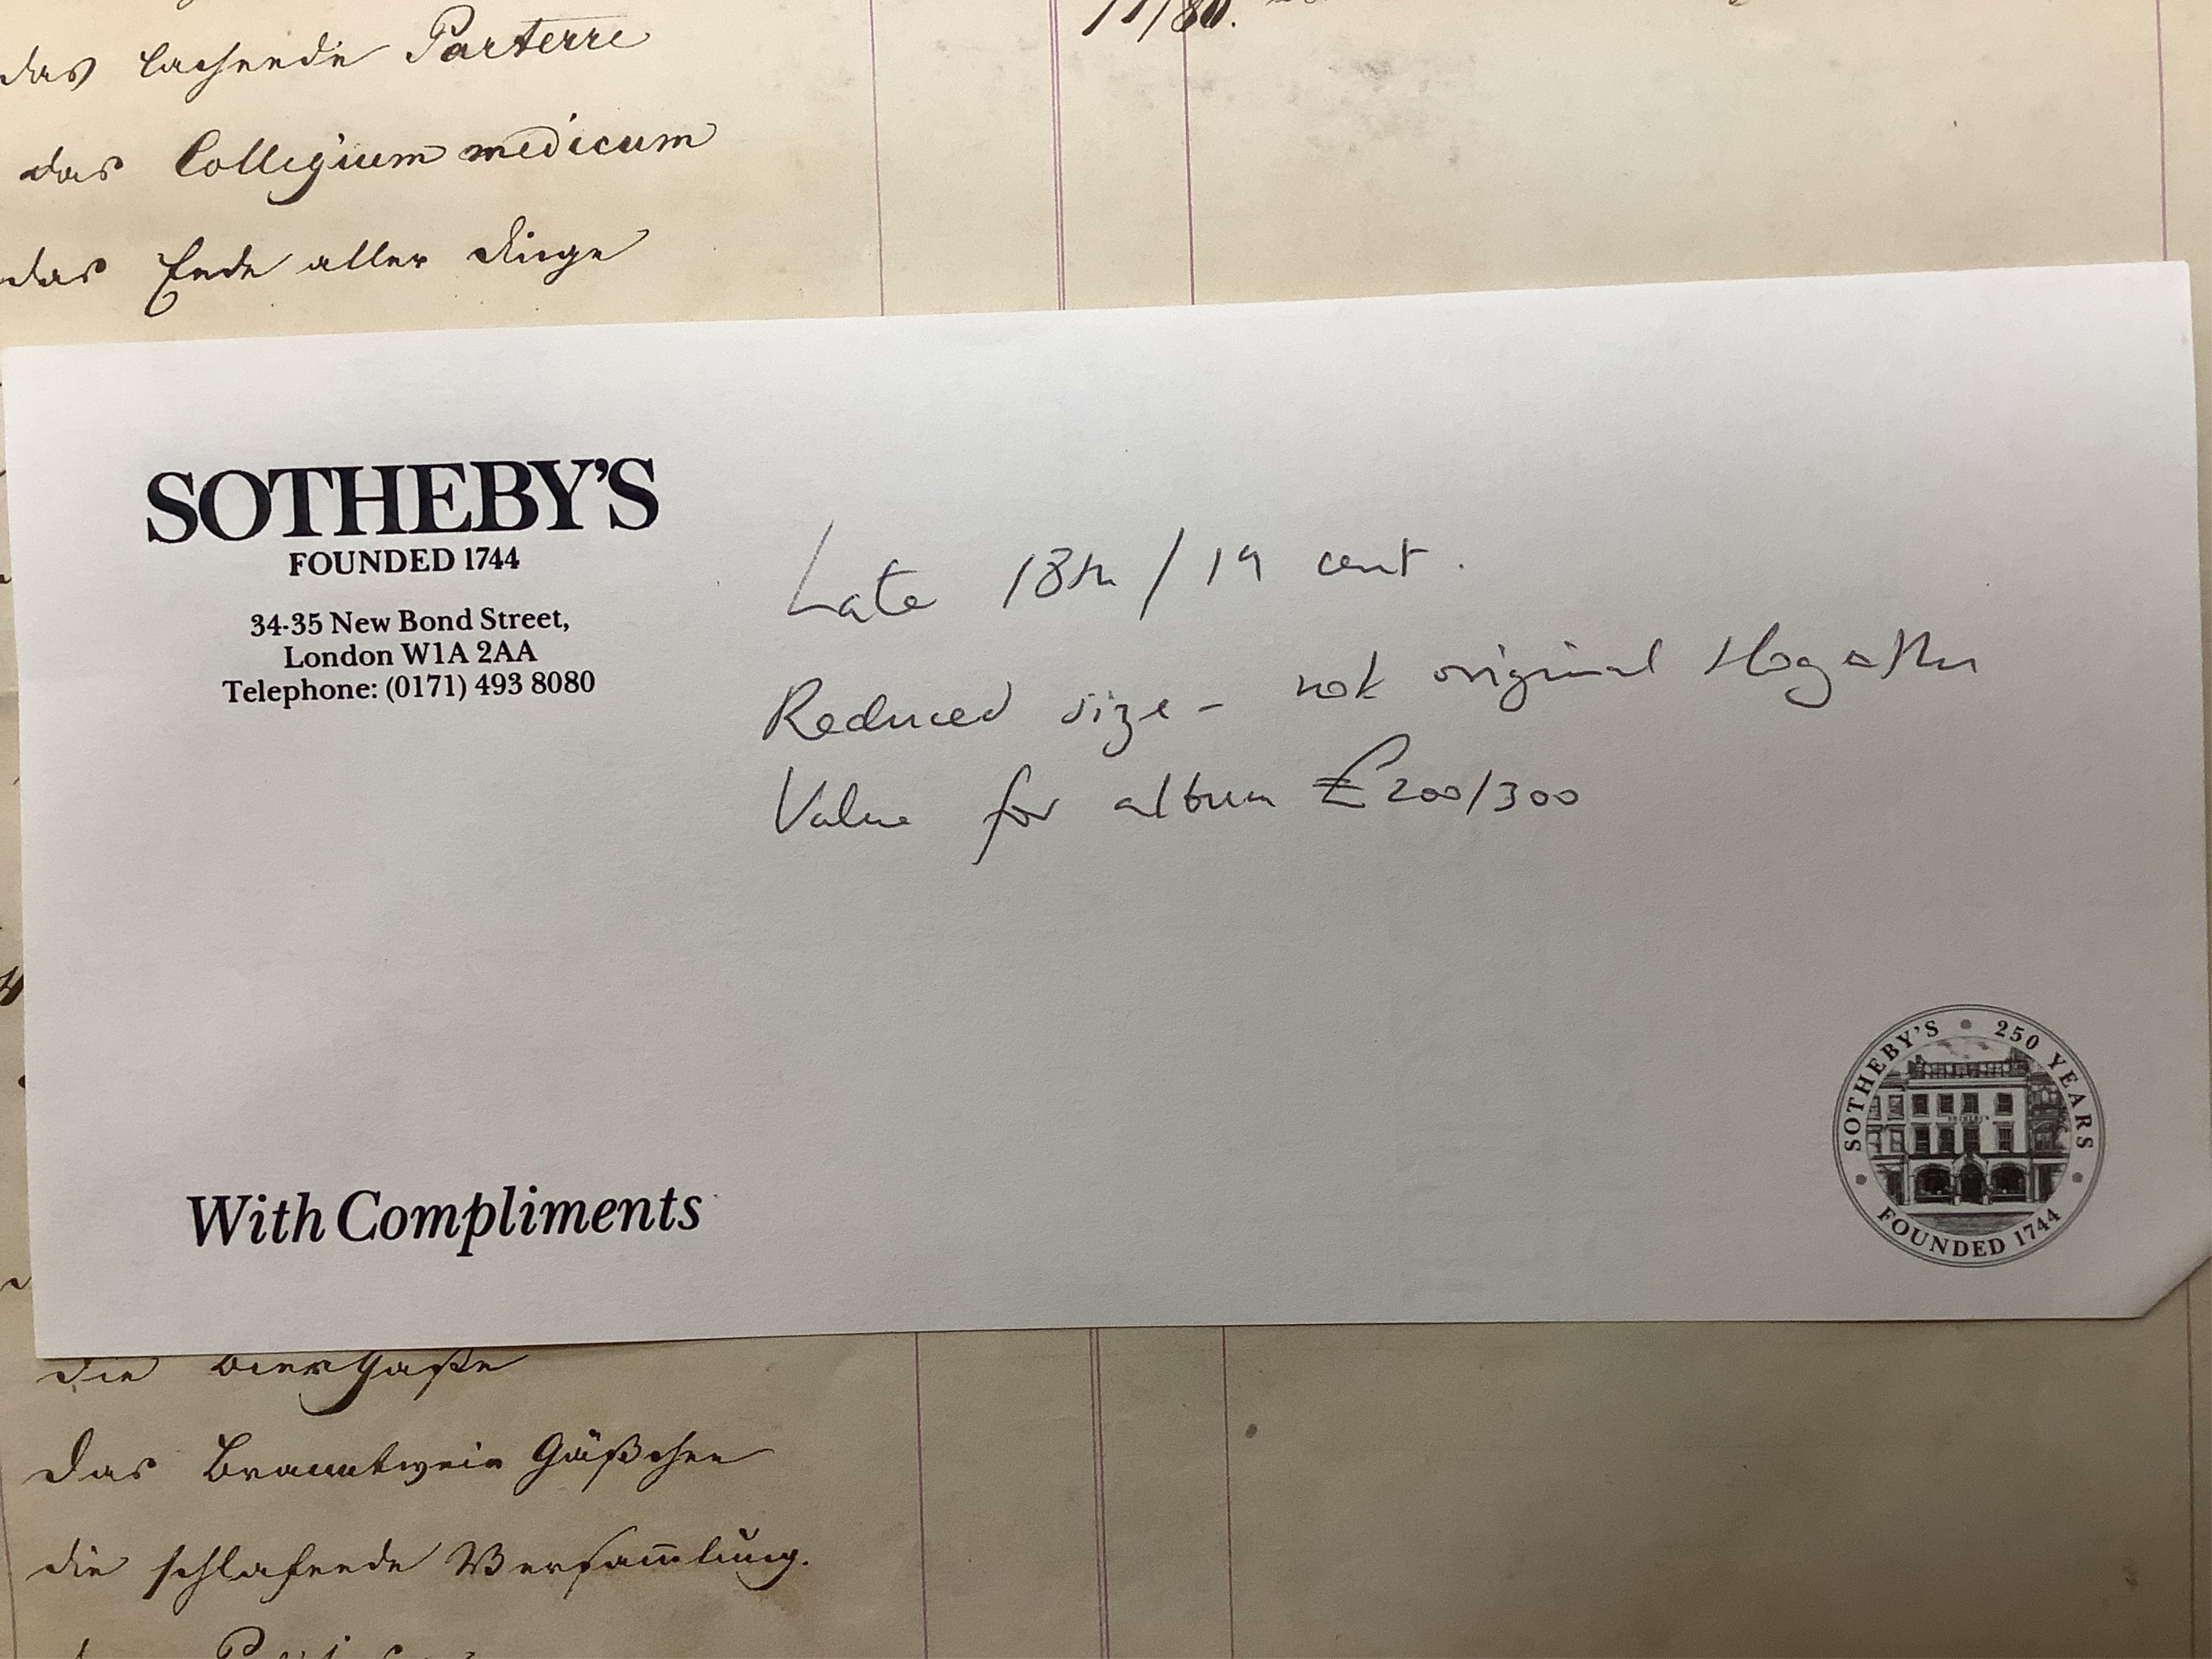 11/80.
das lachende Parterre
das Collegium medicum
das Ende aller Dinge
SOTHEBY'S
FOUNDED 1744
34-35 New Bond Street,
London W1A 2AA
Telephone: (0171) 493 8080
Late 18th / 19 cent.
Reduced size - not original Hogarth
Value for album £200/300
With Compliments
SOTHEBY'S • 250 YEARS • FOUNDED 1744 •
die Biergaße
das Branntwein Gäßchen
die schlafende Versam̅lung.